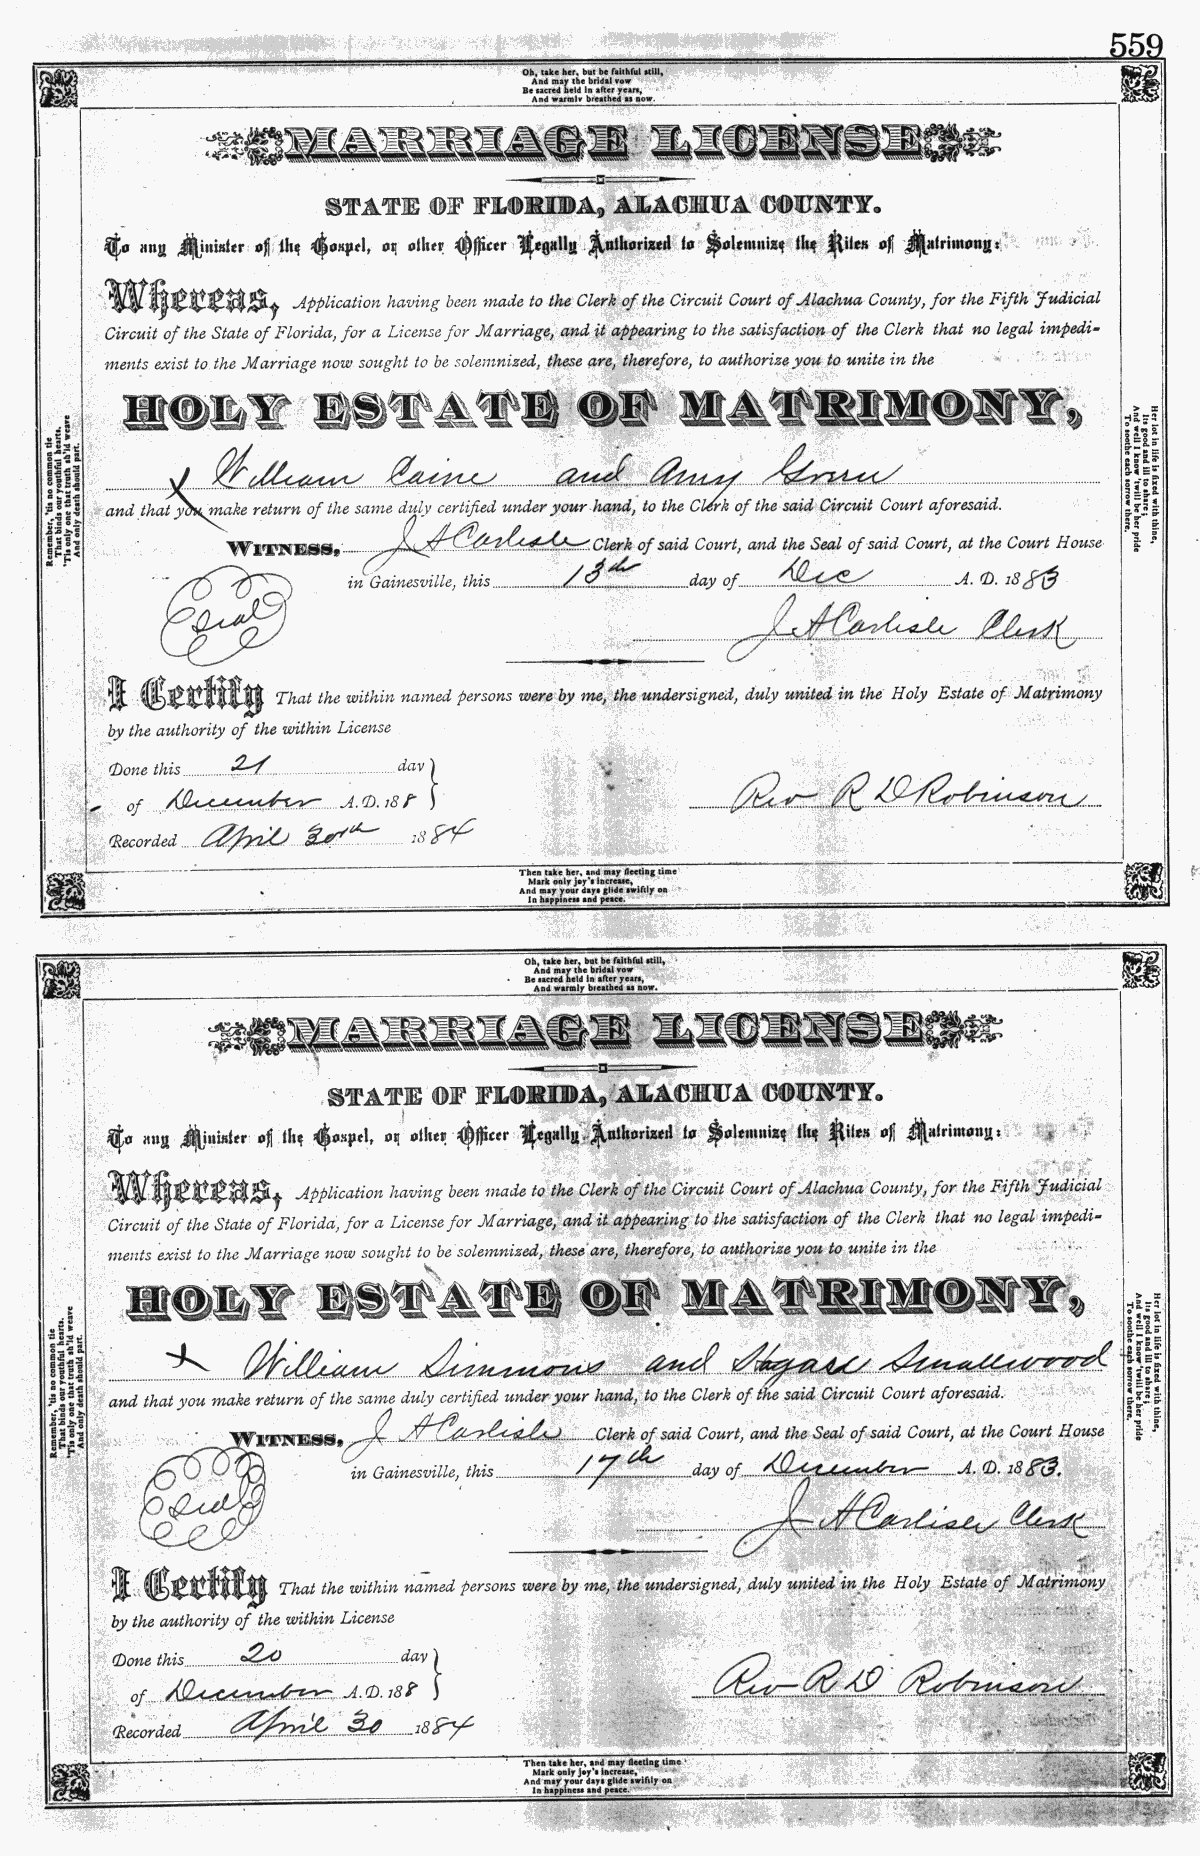 559
Oh, take her, but be faithful still,
And may the bridal vow
Be sacred held in after years,
And warmly breathed as now.
MARRIAGE LICENSE
STATE OF FLORIDA, ALACHUA COUNTY.
To any Minister of the Gospel, or other Officer Legally Authorized to Solemnize the Rites of Matrimony:
Whereas, Application having been made to the Clerk of the Circuit Court of Alachua County, for the Fifth Judicial
Circuit of the State of Florida, for a License for Marriage, and it appearing to the satisfaction of the Clerk that no legal impedi-
ments exist to the Marriage now sought to be solemnized, these are, therefore, to authorize you to unite in the
HOLY ESTATE OF MATRIMONY,
X William Caine and Amy
and that you make return of the same duly certified under your hand, to the Clerk of the said Circuit Court aforesaid.
WITNESS, J A Carlisle Clerk of said Court, and the Seal of said Court, at the Court House
in Gainesville, this 13th day of Dec A. D. 1883
Seal
J A Carlisle Clerk
I Certify That the within named persons were by me, the undersigned, duly united in the Holy Estate of Matrimony
by the authority of the within License
Done this 21 day
of December A.D. 188
Rev R D Robinson
Recorded April 30th 1884
Remember, 'tis no common tie
That binds our youthful hearts,
'Tis only one that truth sh'ld weave
And only death should part.
Her lot in life is fixed with thine,
Its good and ill to share;
And well I know 'twill be her pride
To soothe each sorrow there.
Then take her, and may fleeting time
Mark only joy's increase,
And may your days glide swiftly on
In happiness and peace.
Oh, take her, but be faithful still,
And may the bridal vow
Be sacred held in after years,
And warmly breathed as now.
MARRIAGE LICENSE
STATE OF FLORIDA, ALACHUA COUNTY.
To any Minister of the Gospel, or other Officer Legally Authorized to Solemnize the Rites of Matrimony:
Whereas, Application having been made to the Clerk of the Circuit Court of Alachua County, for the Fifth Judicial
Circuit of the State of Florida, for a License for Marriage, and it appearing to the satisfaction of the Clerk that no legal impedi-
ments exist to the Marriage now sought to be solemnized, these are, therefore, to authorize you to unite in the
HOLY ESTATE OF MATRIMONY,
X William Simmons and Smallwood
and that you make return of the same duly certified under your hand, to the Clerk of the said Circuit Court aforesaid.
WITNESS, J A Carlisle Clerk of said Court, and the Seal of said Court, at the Court House
in Gainesville, this 17th day of December A. D. 1883.
Seal
J A Carlisle Clerk
I Certify That the within named persons were by me, the undersigned, duly united in the Holy Estate of Matrimony
by the authority of the within License
Done this 20 day
of December A.D. 188
Rev R D Robinson
Recorded April 30 1884
Remember, 'tis no common tie
That binds our youthful hearts,
'Tis only one that truth sh'ld weave
And only death should part.
Her lot in life is fixed with thine,
Its good and ill to share;
And well I know 'twill be her pride
To soothe each sorrow there.
Then take her, and may fleeting time
Mark only joy's increase,
And may your days glide swiftly on
In happiness and peace.